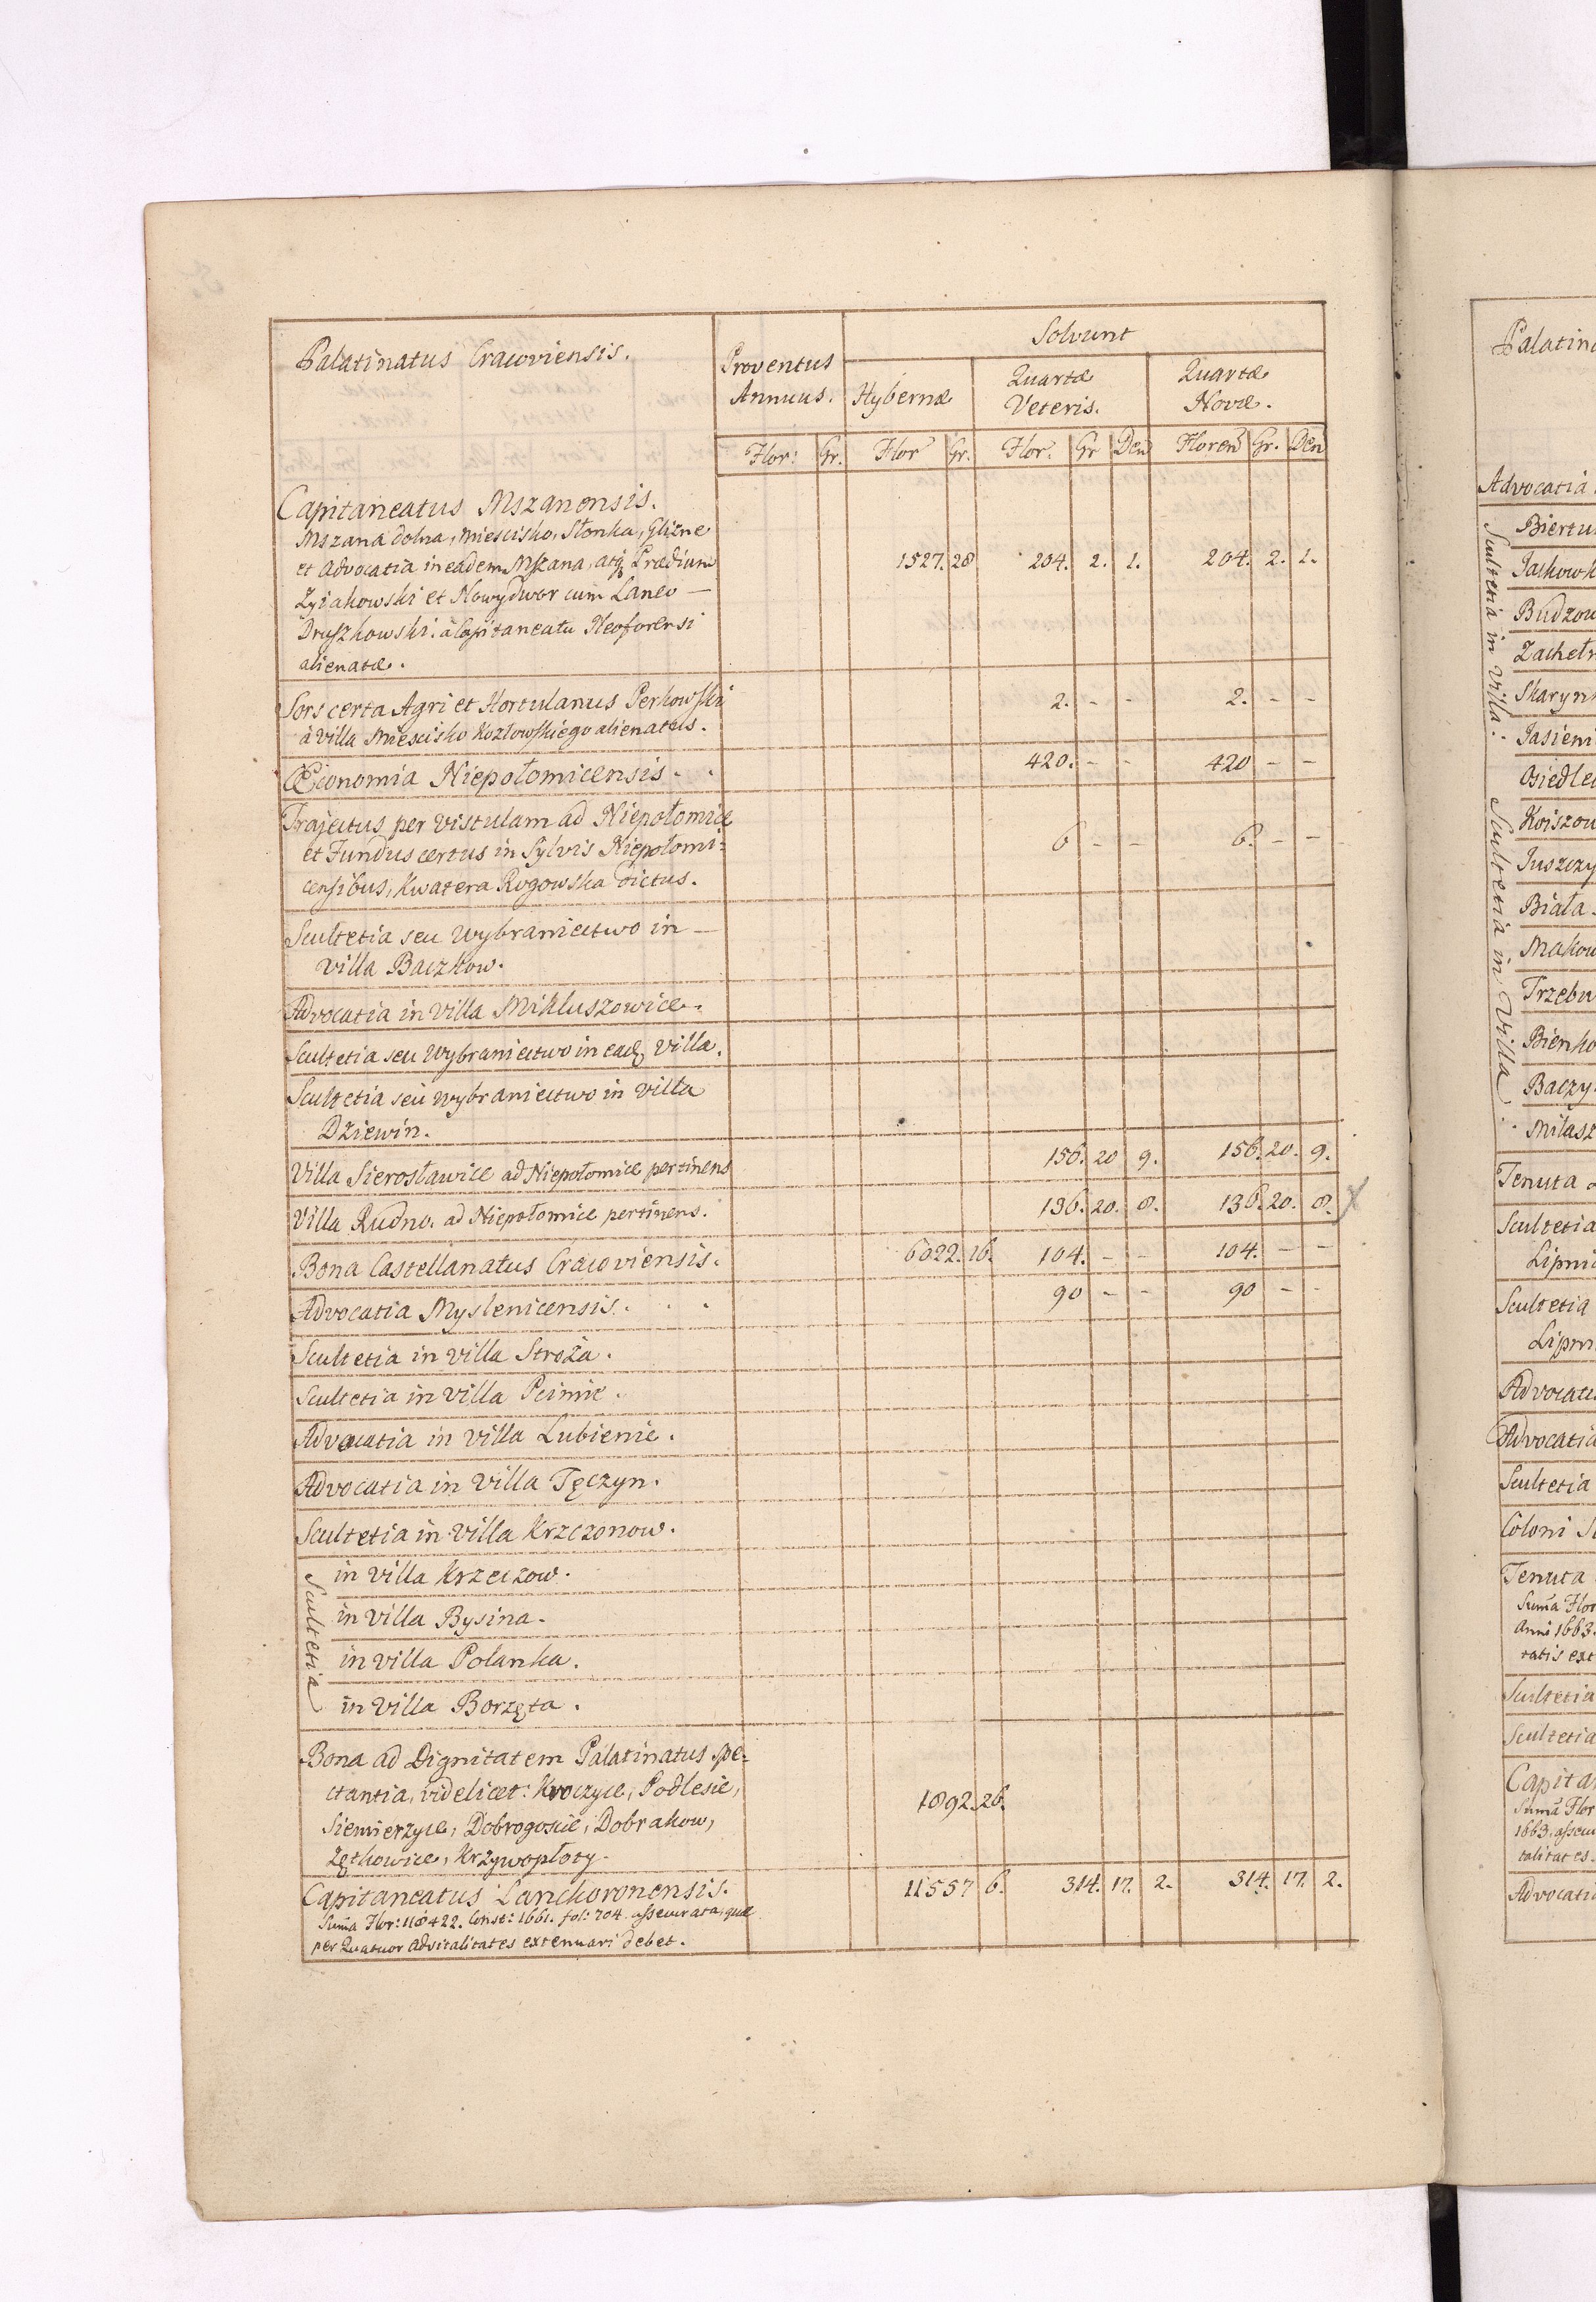 Palatinatus Cracoviensis.
Proventus Annuus.
Solvunt
Hybernæ
Quartæ Veteris.
Quartæ Novæ.
Flor: Gr. Flor Gr. Flor. Gr Den Floren Gr. Den
Capitaneatus Mszanensis.
Mszana dolna, Miescisko, Słonka, Glisne
et Advocatia in eadem Mszana, atq Prædium 1527. 28 204. 2. 1. 204. 2. 1.
Zyiakowski et Nowydwor cum Laneo —
Druszkowski. à Capitaneatu Neoforensi
alienatæ.
Sors certa Agri et Hortulanus Perkowski 2. - - 2. - -
à Villa Miescisko Kozłowskiego alienatus.
Œconomia Niepołomicensis. . 420. - - 420 - -
Trajectus per Vistulam ad Niepołomice
et Fundus certus in Sylvis Niepołomi= 6 - - 6. - -
censibus, Kwatera Rogowska dictus.
Scultetia seu Wybraniectwo in —
Villa Baczkow.
Advocatia in Villa Mikluszowice.
Scultetia seu Wybraniectwo in ead, Villa.
Scultetia seu Wybraniectwo in Villa
Dziewin.
Villa Sierosławice ad Niepołomice pertinens 156. 20 9. 156. 20. 9.
Villa Rudno. ad Niepołomice pertinens. 136. 20. 8. 136. 20. 8. X
Bona Castellanatus Cracoviensis. 6022. 16. 104. - - 104. - -
Advocatia Myslenicensis. . . 90 - - 90 - -
Scultetia in Villa Stroża.
Scultetia in Villa Pcimie.
Advocatia in Villa Lubienie.
Advocatia in Villa Tęczyn.
Scultetia in Villa Krzczonow.
Scultetia
in Villa Krzeczow.
in Villa Bysina.
in Villa Polanka.
in Villa Borzęta.
Bona ad Dignitatem Palatinatus spe=
ctantia, videlicet: Kroczyce, Podlesie, 1892. 26.
Siemierzyce, Dobrogoscie, Dobrakow,
Zętkowice, Krzywopłoty.
Capitaneatus Lanckoronensis. 11557 6. 314. 17. 2. 314. 17. 2.
Suma Flor: 118422. Const: 1661. fol: 704. assecurata, quæ
per Quatuor Advitalitates extenuari debet.
Palatin
Advocatia
Scultetia in Villa.
Scultetia in Villa
Biertu
Jachowk
Budzow
Zacheł
Skaryn
Jasieni
Osiedle
Koiszow
Juszczy
Biała
Makow
Trzebu
Bienko
Baczy
Milasz
Tenuta
Scultetia
Lipni
Scultetia
Lipni
Advocati
Advocatia
Scultetia
Coloni
Tenuta
Suma Flor
Anni 1663.
tatis ext
Scultetia
Scultetia
Capita
Suma Flor
1663. assecu
talitates
Advocati